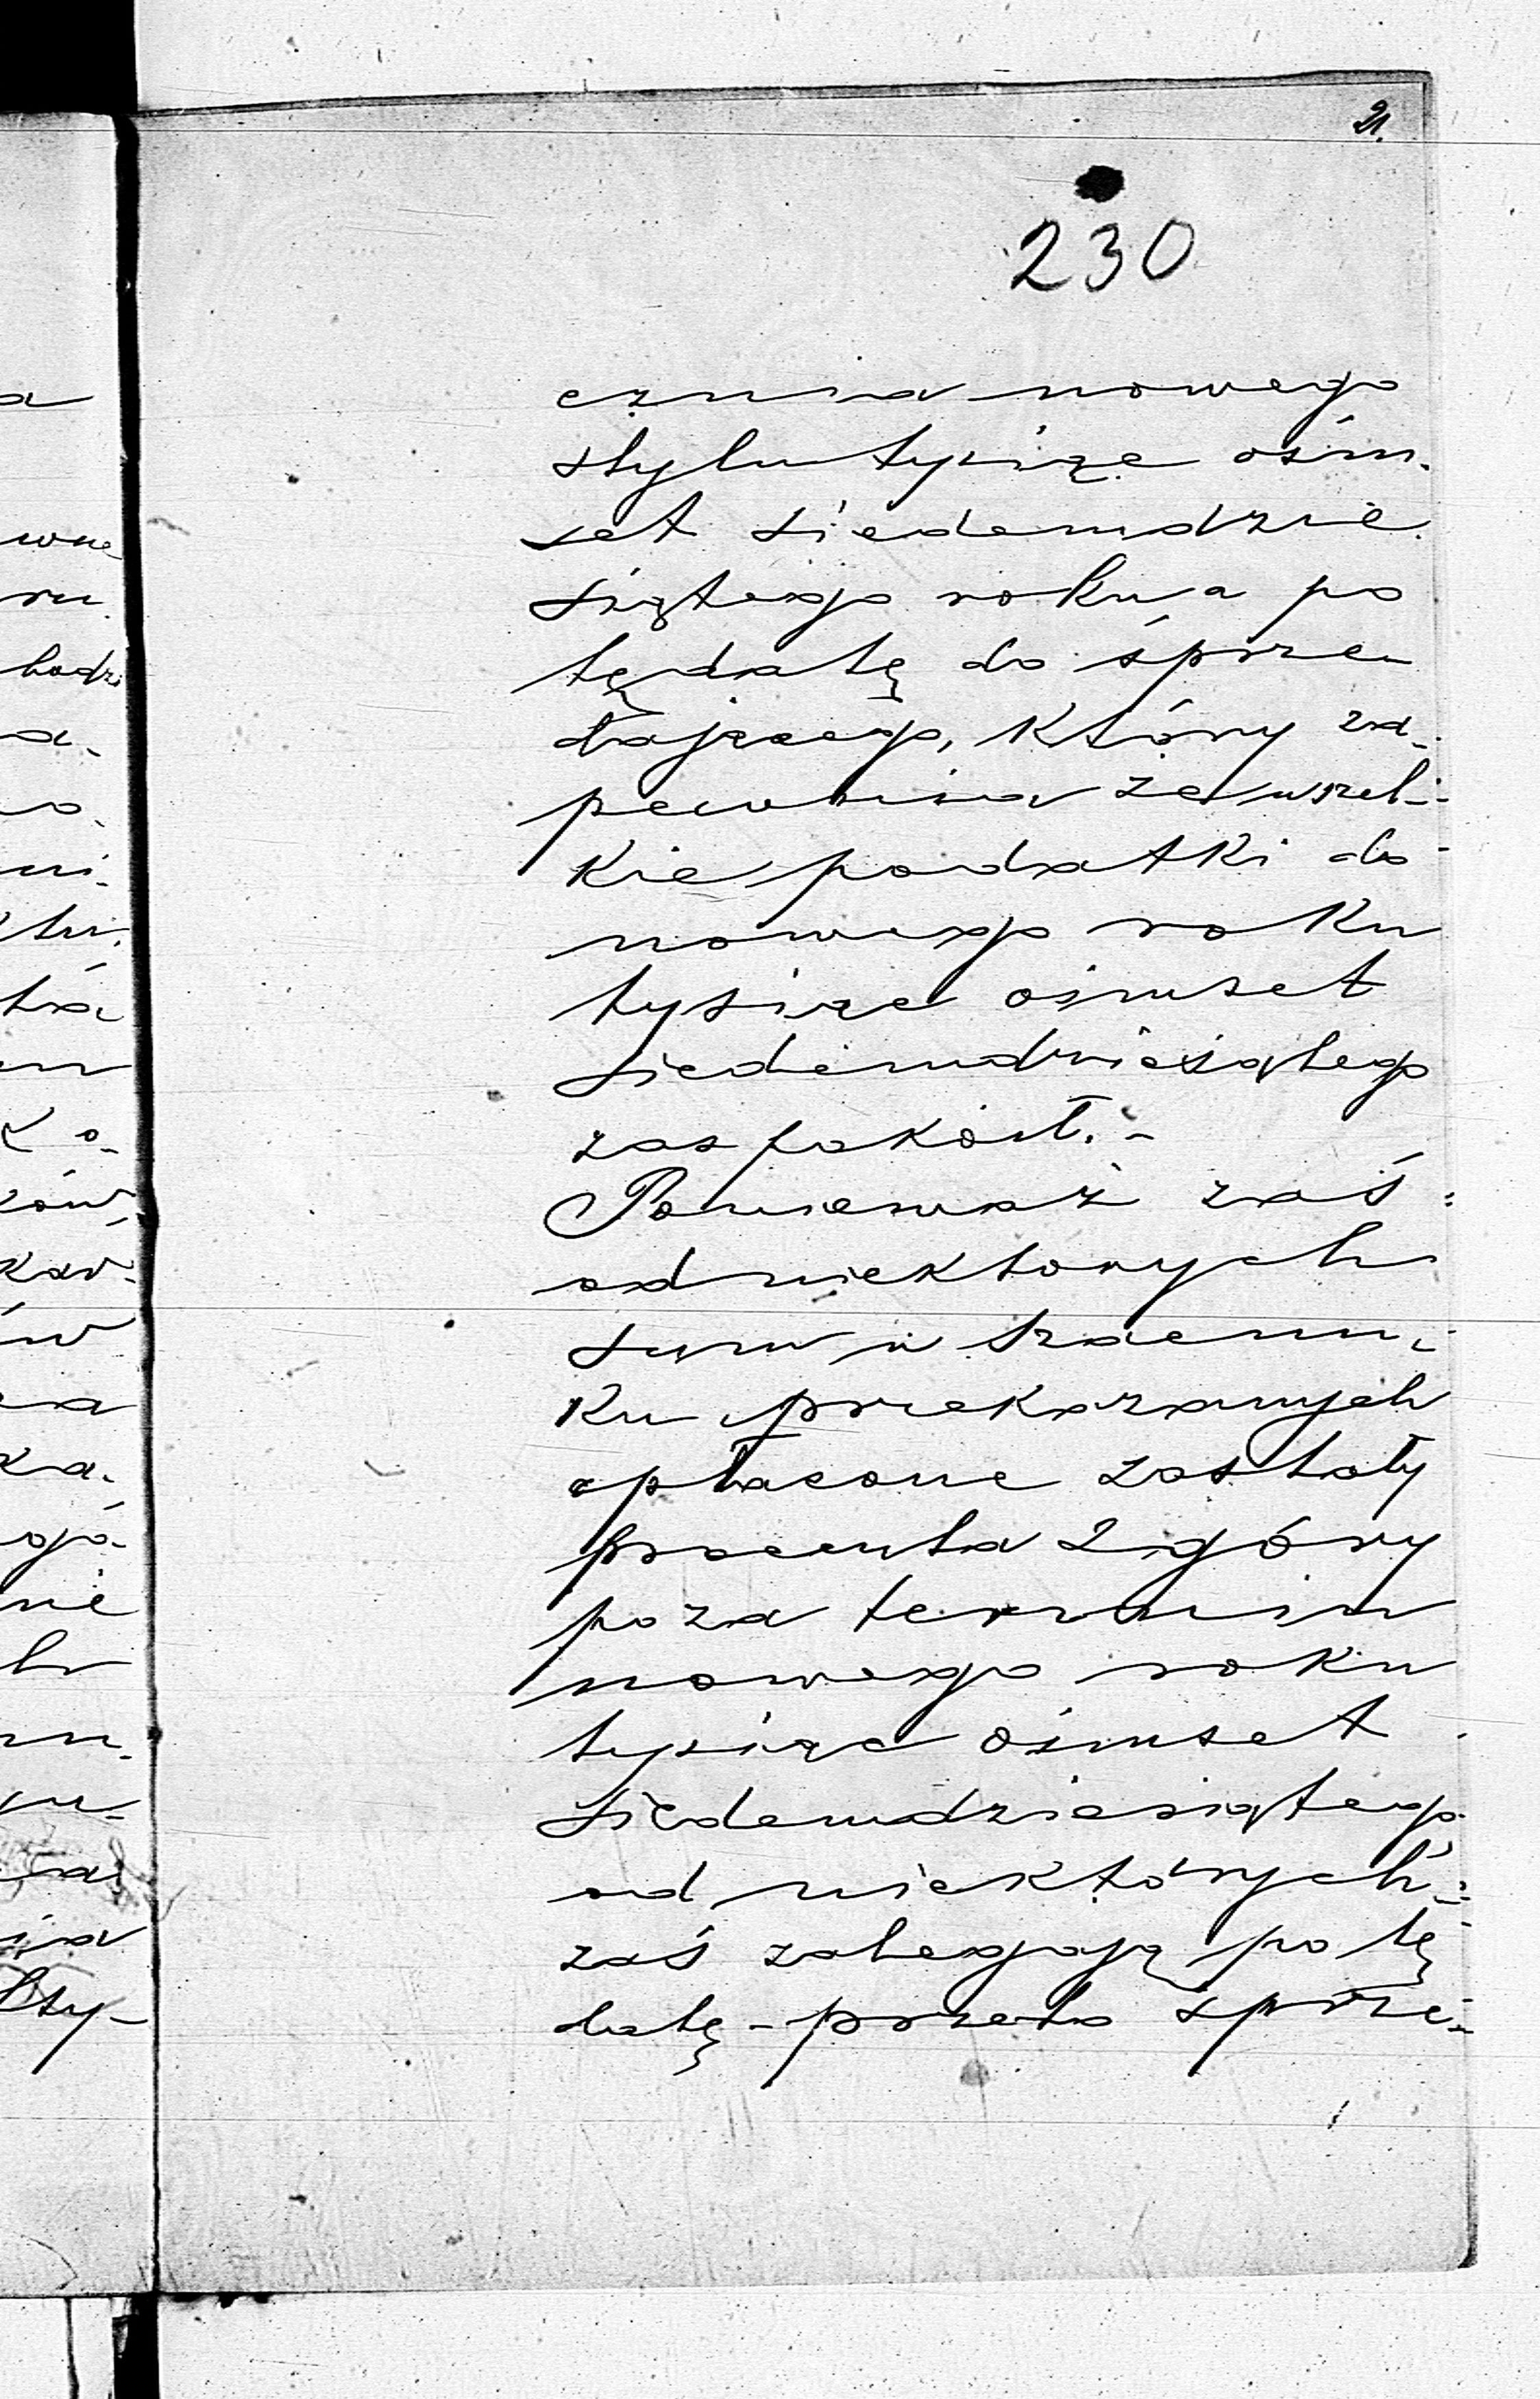 21.
230
cznia nowego
stylu tysiąc ośm-
set siedemdzie-
siątego roku a po
tę datę do sprze-
dającego, który za-
pewnia że wszel-
kie podatki do
nowego roku
tysiąc ośmset
siedemdziesiątego
zaspokoił.-
Ponieważ zaś
od niektorych
sum w szacun-
ku przekazanych
opłacone zostały
procenta z góry
poza termin
nowego roku
tysiąc ośmset
siedemdziesiątego
od niektórych
zaś zalegają po tę
datę - przeto sprze-